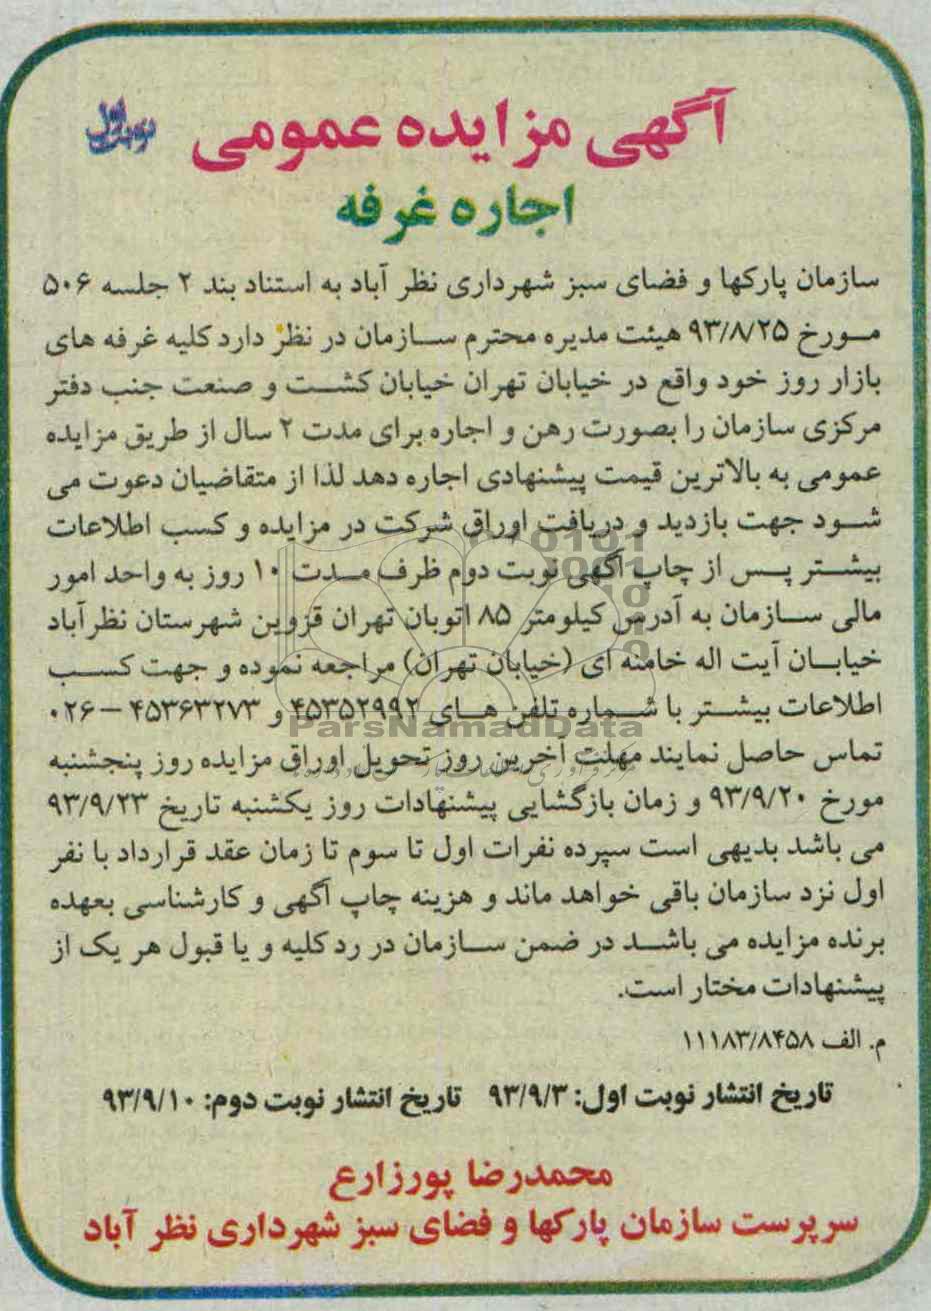 آگهی مزایده عمومی
نوبت اول
اجاره غرفه
سازمان پارکها و فضای سبز شهرداری نظر آباد به استناد بند ۲ جلسه ۵۰۶
مورخ ۹۳/۸/۲۵ هیئت مدیره محترم سازمان در نظر دارد کلیه غرفه های
بازار روز خود واقع در خیابان تهران خیابان کشت و صنعت جنب دفتر
مرکزی سازمان را بصورت رهن و اجاره برای مدت ۲ سال از طریق مزایده
عمومی به بالاترین قیمت پیشنهادی اجاره دهد لذا از متقاضیان دعوت می
شود جهت بازدید و دریافت اوراق شرکت در مزایده و کسب اطلاعات
بیشتر پس از چاپ آگهی نوبت دوم ظرف مدت ۱۰ روز به واحد امور
مالی سازمان به آدرس کیلومتر ۸۵ اتوبان تهران قزوین شهرستان نظرآباد
خیابان آیت اله خامنه ای (خیابان تهران) مراجعه نموده و جهت کسب
اطلاعات بیشتر با شماره تلفن های ۴۵۳۵۲۹۹۲ و ۴۵۳۶۳۲۷۳ – ۰۲۶
ParsNamadData
تماس حاصل نمایند مهلت آخرین روز تحویل اوراق مزایده روز پنجشنبه
مورخ ۹۳/۹/۲۰ و زمان بازگشایی پیشنهادات روز یکشنبه تاریخ ۹۳/۹/۲۳
می باشد بدیهی است سپرده نفرات اول تا سوم تا زمان عقد قرارداد با نفر
اول نزد سازمان باقی خواهد ماند و هزینه چاپ آگهی و کارشناسی بعهده
برنده مزایده می باشد در ضمن سازمان در رد کلیه و یا قبول هر یک از
پیشنهادات مختار است.
م. الف ۱۱۱۸۳/۸۴۵۸
تاریخ انتشار نوبت اول: ۹۳/۹/۳ تاریخ انتشار نوبت دوم: ۹۳/۹/۱۰
محمدرضا پورزارع
سرپرست سازمان پارکها و فضای سبز شهرداری نظر آباد